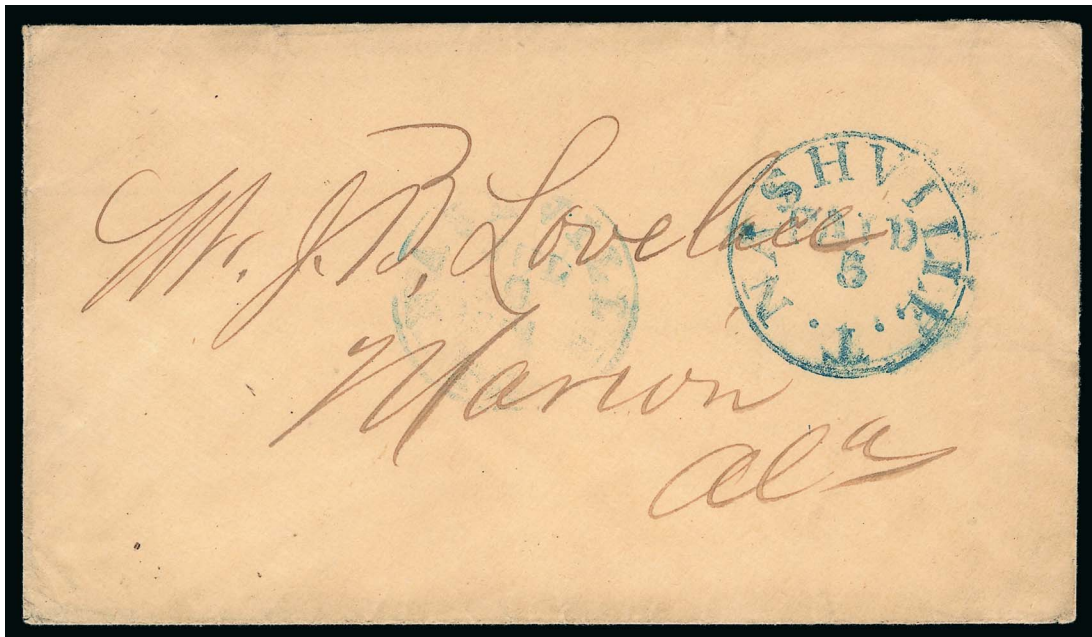 Mr. J. B. Lovelace
Marion
Ala
NASHVILLE . T .
PAID
5